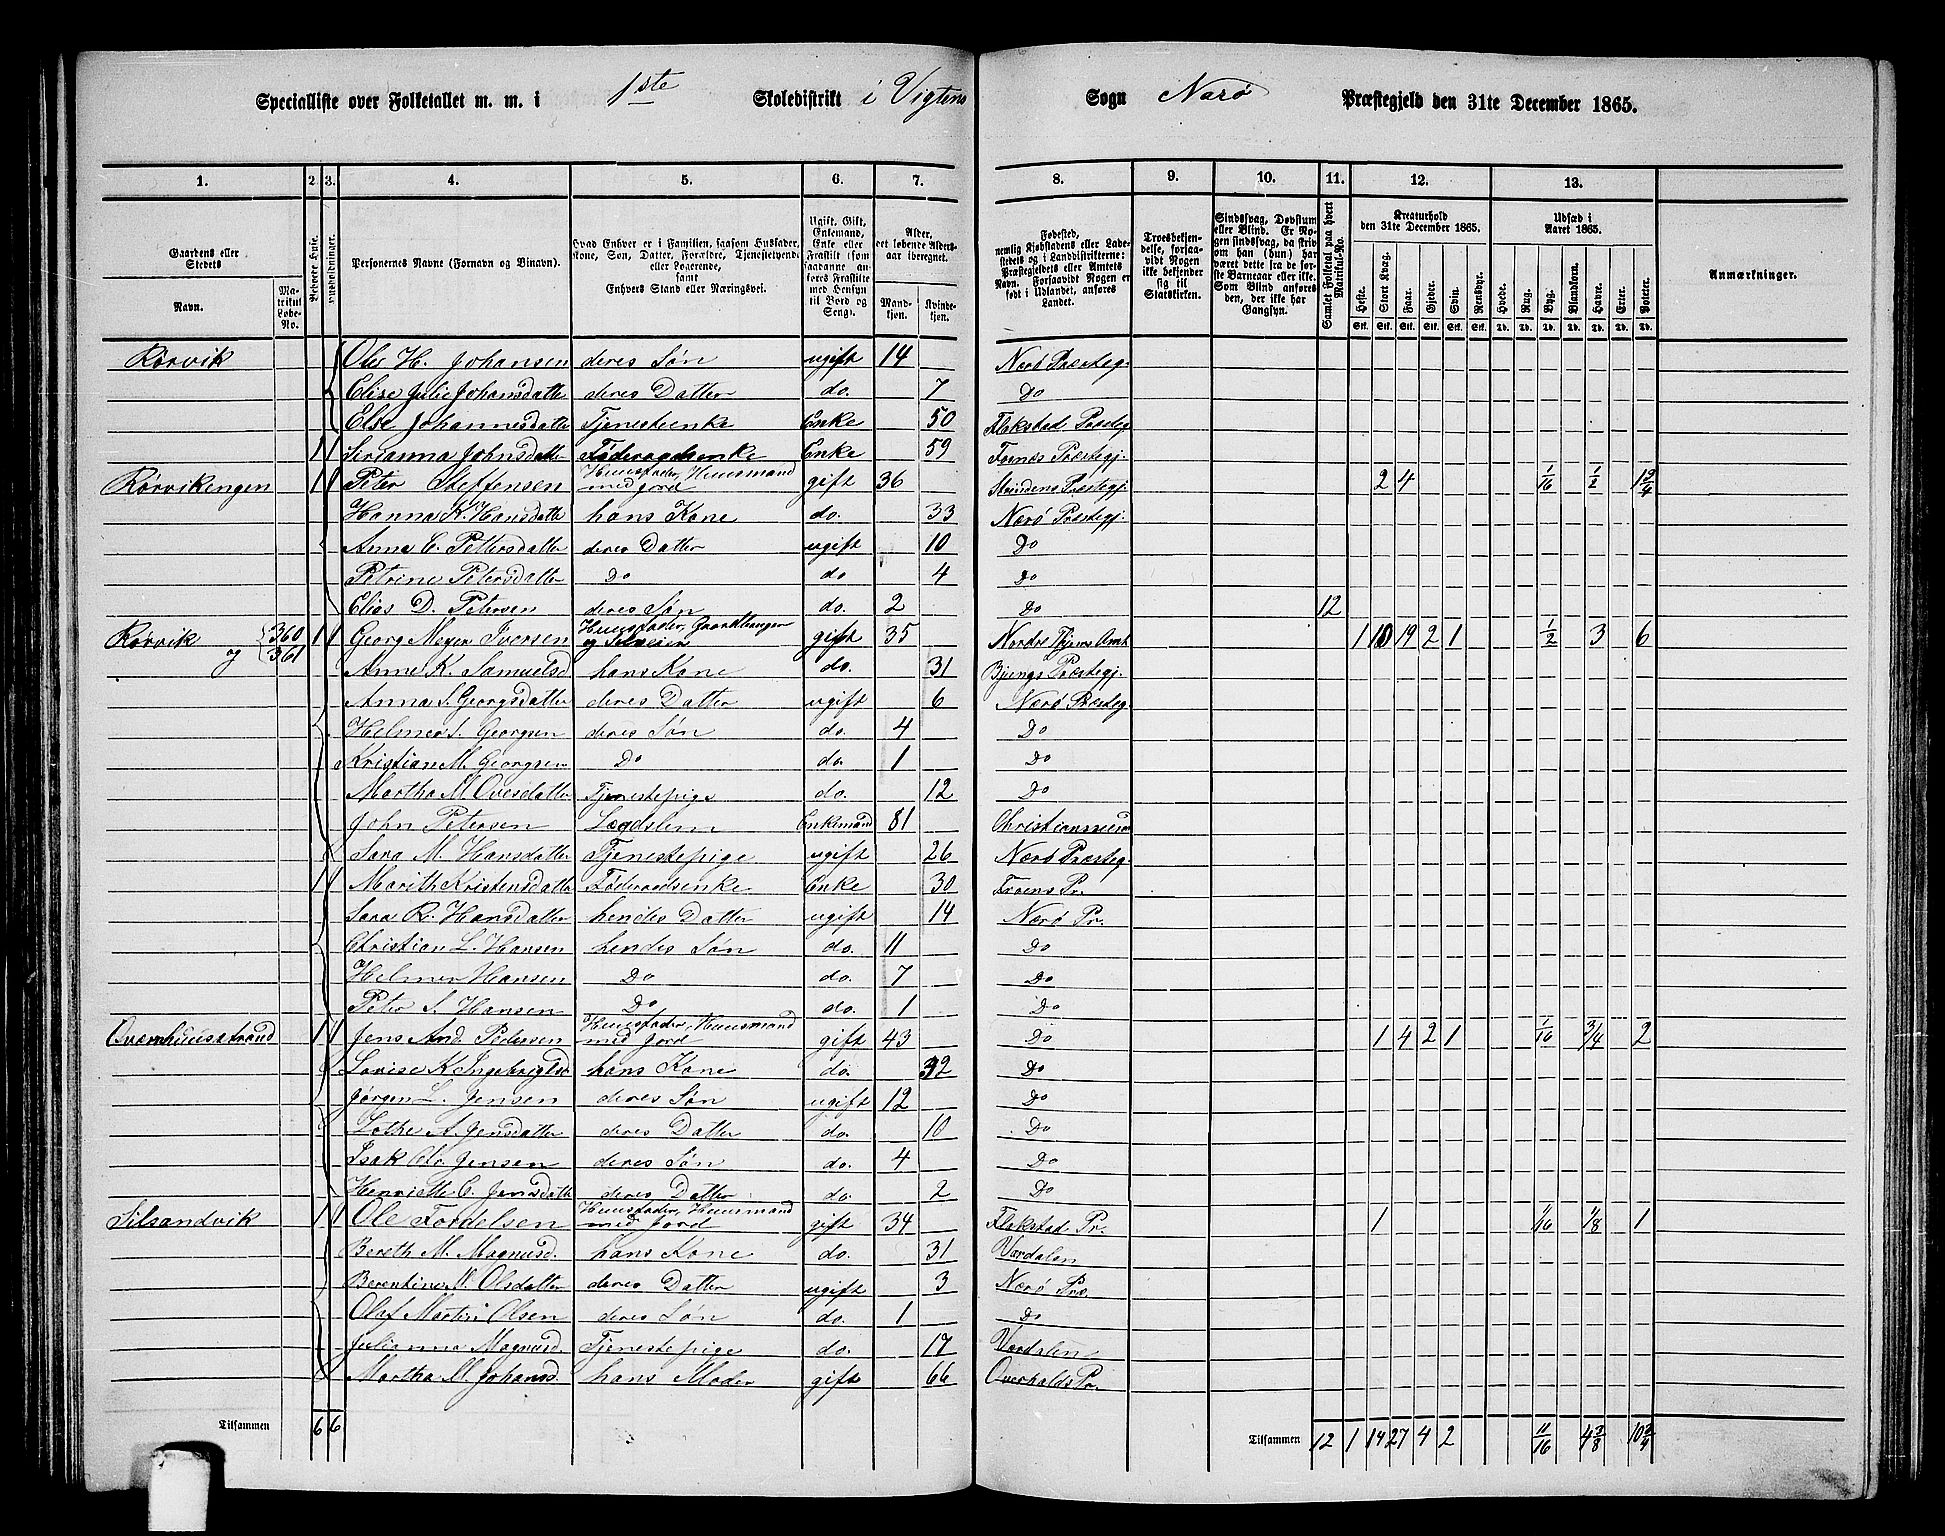 Specialliste over Folketallet m. m. i 1ste Skoledistrikt i Vigtens Sogn Nærø Præstegjeld den 31te December 1865.
1. 2. 3. 4. 5. 6. 7. 8. 9. 10. 11. 12. 13.
Gaardens eller Stedets Navn. Matrikul Løbe-No. Beboede Huse. Husholdninger. Personernes Navne (Fornavn og Tilnavn). Hvad Enhver er i Familien, saasom Husfader, Kone, Søn, Datter, Forældre, Tjenestetyende eller Logerende, samt Enhvers Stand eller Næringsvei. Ugift, Gift, Enkemand, Enke eller Fraskilt Alder, det løbende Alders-aar iberegnet. Mandkjøn. Kvindekjøn.
Fødested, nemlig Kjøbstadens eller Ladestedets og i Landdistrikterne: Præstegjeldets eller Amtets Navn. Forsaavidt Nogen er født i Udlandet, anføres Landet. Troesbekjendelse, forsaavidt Nogen ikke bekjender sig til Statskirken. Sindssvag, Døvstum eller Blind. Samlet Folketal paa hvert Matrikul-No. Kreaturhold den 31te December 1865. Udsæd i Aaret 1865. Anmærkninger.
Heste. Stort Kvæg. Faar. Gjeder. Svin. Rensdyr. Hvede. Rug. Byg. Blandkorn. Havre. Erter. Poteter.
Rørvik Ole H. Johansen deres Søn ugift 14 Nærø Præsteg.
Elise Julie Johansdatter deres Datter do. 7 Do
Else Johannesdatter Tjenesteenke Enke 50 Flakstad Præsteg
1 1 Sirianna Johnsdatter Føderaadsenke Enke 59 Fosnæs Præstegj.
Rørvikengen 1 1 Peter Steffensen Huusfader, Huusmand med Jord gift 36 Strindens Præstegj. 2 4 1/16 1/2 1 3/4
Hanna K. Hansdatter hans Kone do. 33 Nærø Præstegj.
Anna C. Pettersdatter deres Datter ugift 10 Do
Petrine Petersdatter Do do 4 Do
Elias D. Petersen deres Søn do. 2 Do 12
Rørvik og {360 361 1 1 Georg Meyer Iversen Huusfader, Gaardbruger og Selveier gift 35 Nordre Thjems Amt 1 10 19 2 1 1/2 3 6
Anne K. Samuelsd hans Kone do. 31 Bjugns Præstegj.
Anna S. Georgsdatter deres Datter ugift 6 Nærø Præsteg
Helmer S. Georgsen deres Søn do. 4 Do
Kristian M. Georgsen Do do. 1 Do
Martha M. Ovesdatter Tjenestepige do. 12 Do
John Petersen Lægdslem Enkemand 81 Christianssund
Sara M. Hansdatter Tjenestepige ugift 26 Nærø Præsteg
1 1 Marith Kristensdatter Føderaadsenke Enke 30 Froens Pr.
Sara R. Hansdatter hendes Datter ugift 14 Nærø Pr.
Christian L. Hansen hendes Søn do. 11 Do
Helmer Hansen Do do. 7 Do
Peter S. Hansen Do do. 1 Do
Qværnhuusstrand 1 1 Jens And. Pedersen Huusfader, Huusmand med Jord gift 43 Do 1 4 2 1 1/16 3/4 2
Lovise K. Ingebrigtsd hans Kone do. 32 Do
Jørgen L. Jensen deres Søn ugift 12 Do
Lothe A. Jensdatter deres Datter do. 10 Do
Isak Ol. Jensen deres Søn do. 4 Do
Henriette C. Jensdatter deres Datter do. 2 Do
Silsandvik 1 1 Ole Fordelsen Huusfader, Huusmand med Jord gift 34 Flakstad Pr. 1 1/16 1/8 1
Bereth M. Magnusd. hans Kone do. 31 Værdalen
Berentine M. Olsdatter deres Datter ugift 3 Nærø Præ.
Olaf Martin Olsen deres Søn do. 1 Do
Julianna Magnusd. Tjenestepige do. 17 Værdalen
Martha M. Johansd. hans Moder gift 66 Overhalds Pr.
Tilsammen 6 6 Tilsammen 12 1 14 27 4 2 11/16 4 3/8 10 3/4